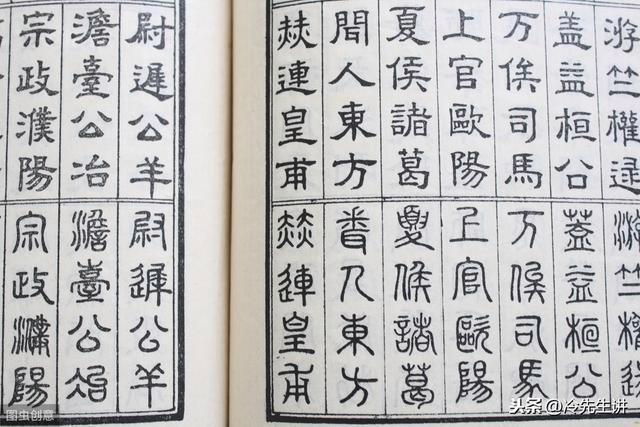 游竺權逯
盖益桓公
万俟司馬
上官歐陽
夏侯諸葛
聞人東方
赫連皇甫
游竺權逯
蓋益桓公
万俟司馬
上官歐陽
夏侯諸葛
聞人東方
赫連皇甫
尉遲公羊
澹臺公冶
宗政濮陽
尉遲公羊
澹臺公冶
宗政濮陽
图虫创意
头条@冷先生讲